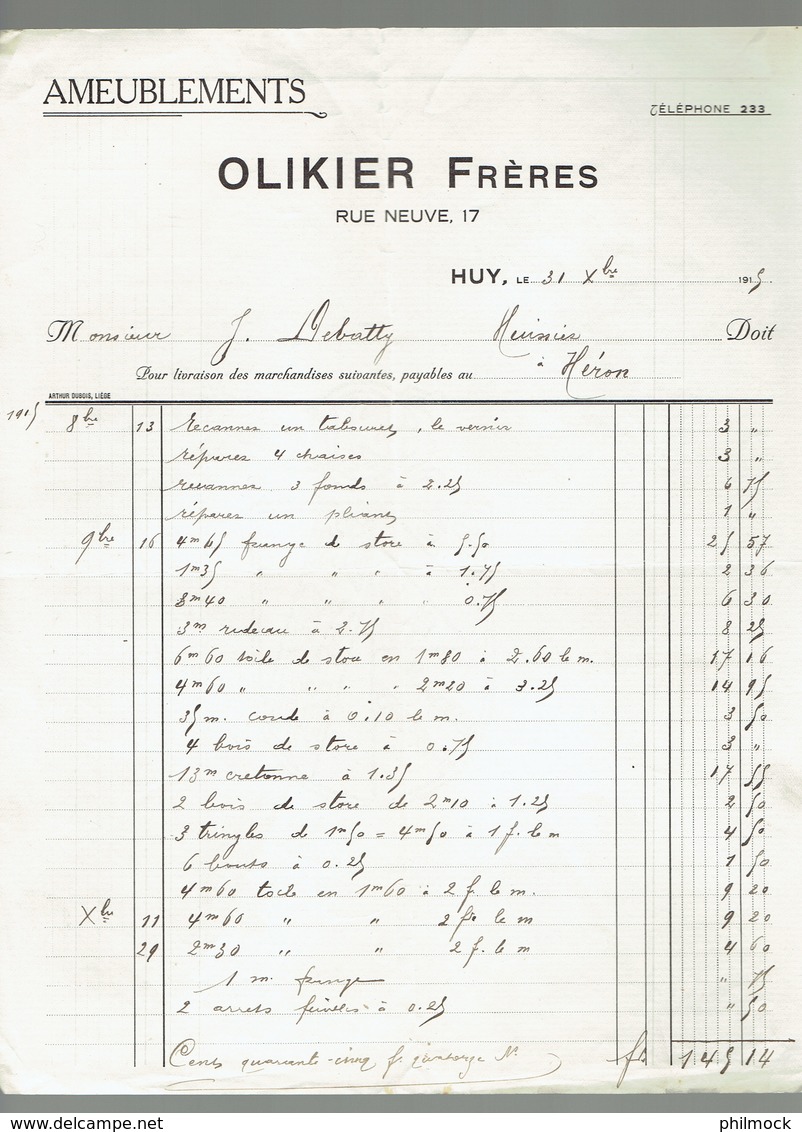 AMEUBLEMENTS
TÉLÉPHONE 233
OLIKIER FRÈRES
RUE NEUVE, 17
HUY, LE 31 Xbre 1915
Monsieur J. Debatty Huissier Doit
Pour livraison des marchandises suivantes, payables au à Héron
ARTHUR DUBOIS, LIÉGE
1915 8bre 13 recanner un tabouret, le vernir 3 "
réparer 4 chaises 3 "
recanner 3 fonds à 2.25 6 75
réparer un pliant 1 "
9bre 16 4m65 frange de store à 5.50 25 57
1m35 " " " à 1.75 2 36
8m40 " " " " 0.75 6 30
3m rideau à 2.75 8 25
6m60 toile de store en 1m80 à 2.60 le m. 17 16
4m60 " " " " 2m20 à 3.25 14 95
35 m. corde à 0.10 le m. 3 50
4 bois de store à 0.75 3 "
13m cretonne à 1.35 17 55
2 bois de store de 2m10 à 1.25 2 50
3 tringles de 1m50 = 4m50 à 1 f. le m 4 50
6 bouts à 0.25 1 50
4m60 toile en 1m60 à 2 f. le m. 9 20
Xbre 11 4m60 " " 2 fr le m 9 20
29 2m30 " " 2 f. le m 4 60
1 m. frange " 75
2 arrets à 0.25 " 50
Cents quarante-cinq f. quatorze fr 145 14
philmock